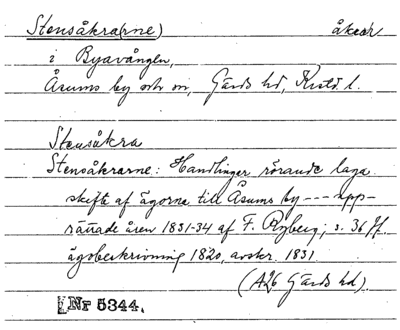 Stensåkra(rne) åkrar
i Byavången,
Åsums by och sn, Gärds hd, Krist. l.
Stensåkra
Stensåkrarne: Handlingar rörande laga
skifte af ägorna till Åsums by --- upp-
rättade åren 1831-34 af F. Ryberg; s. 36 ff.
ägobeskrivning 1820, avskr. 1831
(A26 Gärds hd).
Nr 5344.